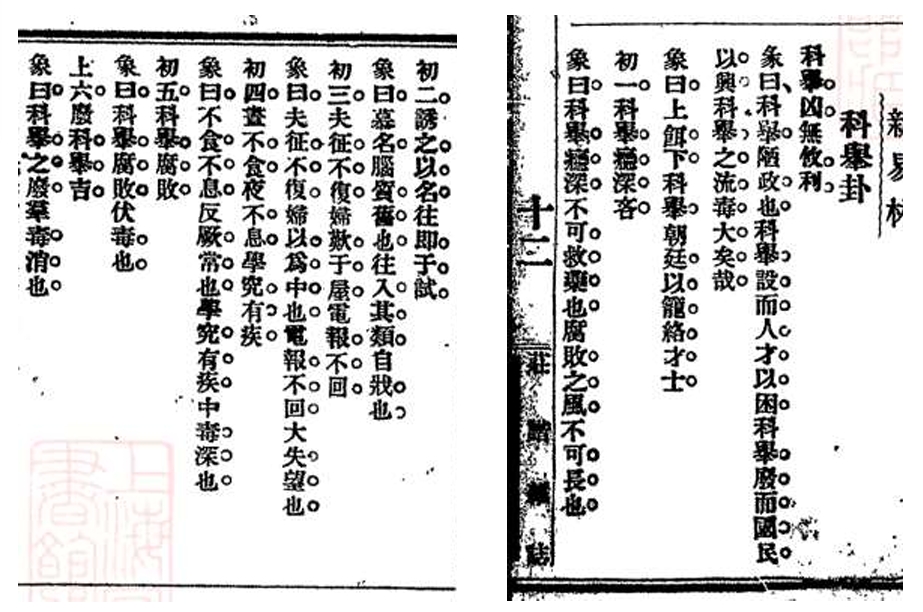 新易林
科舉卦
科舉凶無攸利
彖曰科舉陋政也科舉設而人才以困科舉廢而國民
以興科舉之流毒大矣哉
象曰上餌下科舉朝廷以籠絡才士
初一科舉癮深吝
象曰科舉癮深不可救藥也腐敗之風不可長也
十二
莊諧雜誌
初二誘之以名往即于試
象曰慕名腦質舊也往入其類自戕也
初三夫征不復婦歎于屋電報不回
象曰夫征不復婦以爲中也電報不回大失望也
初四晝不食夜不息學究有疾
象曰不食不息反厥常也學究有疾中毒深也
初五科舉腐敗
象曰科舉腐敗伏毒也
上六廢科舉吉
象曰科舉之廢羣毒消也